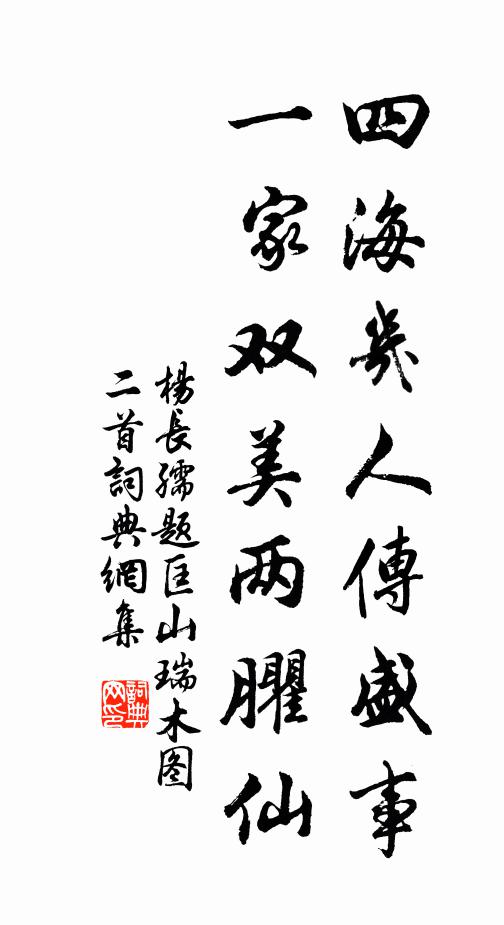 四海幾人傳盛事
一家双美两臞仙
楊長孺題匡山瑞木图
二首詞典網集
詞典
网印